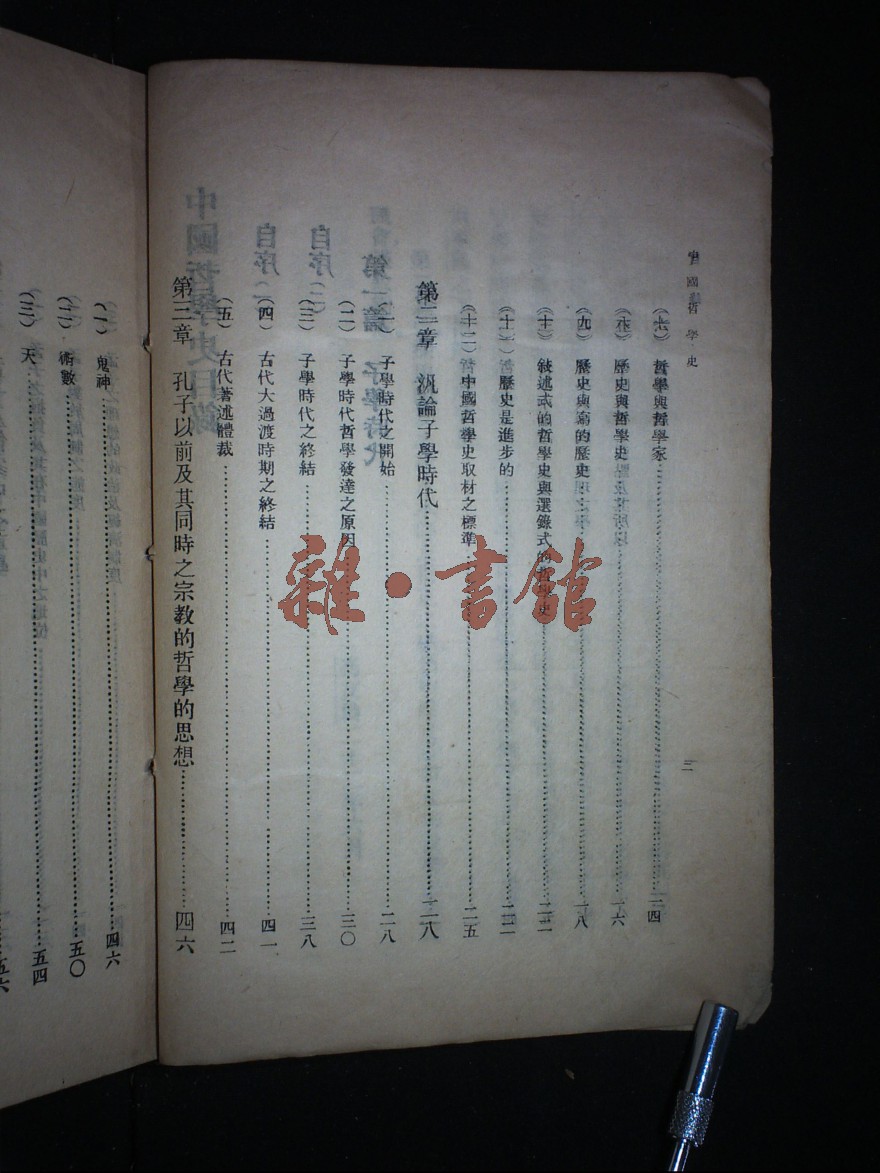 中國哲學史
二
哲學與哲學家……一四
歷史與哲學史……一六
歷史與寫的歷史……一八
(十) 敍述式的哲學史與選錄式的哲學史……二二
(十一) 歷史是進步的……二三
(十二) 中國哲學史取材之標準……二五
第二章 汎論子學時代……二八
(一) 子學時代之開始……二八
(二) 子學時代哲學發達之原因……三〇
(三) 子學時代之終結……三八
(四) 古代大過渡時期之終結……四一
(五) 古代著述體裁……四二
第三章 孔子以前及其同時之宗教的哲學的思想……四六
(一) 鬼神……四六
(二) 術數……五〇
(三) 天……五四
五六
雜·書館